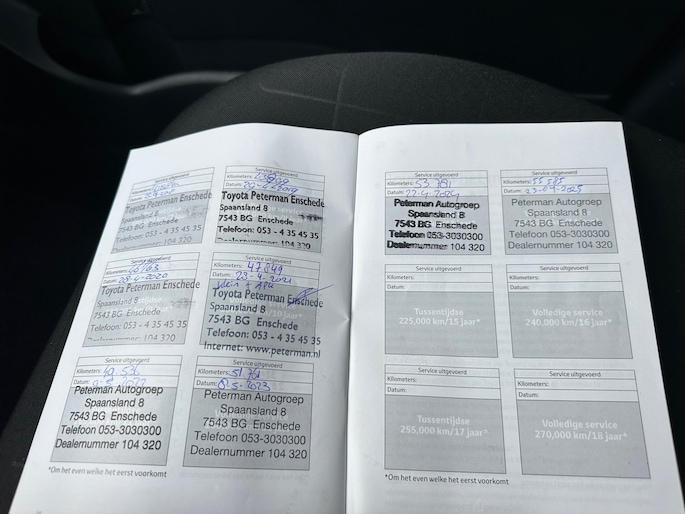 Service uitgevoerd
Kilometers:
Datum:
Toyota Peterman Enschede
Spaansland 8
7543 BG Enschede
Telefoon: 053 - 4 35 45 35
Dealernummer: 104 320
Service uitgevoerd
Kilometers:
Datum: 29-4-2019
Toyota Peterman Enschede
Spaansland 8
7543 BG Enschede
Telefoon: 053 - 4 35 45 35
Dealernummer: 104 320
Service uitgevoerd
Kilometers:
Datum: 28-4-2020
Toyota Peterman Enschede
Spaansland 8
7543 BG Enschede
Telefoon: 053 - 4 35 45 35
Dealernummer: 104 320
Service uitgevoerd
Kilometers: 47849
Datum: 28-4-2021
klein + APK
Toyota Peterman Enschede
Spaansland 8
7543 BG Enschede
Telefoon: 053 - 4 35 45 35
Internet: www.peterman.nl
Service uitgevoerd
Kilometers: 49.536
Datum:
Peterman Autogroep
Spaansland 8
7543 BG Enschede
Telefoon 053-3030300
Dealernummer 104 320
Service uitgevoerd
Kilometers:
Datum: 8-5-2023
Peterman Autogroep
Spaansland 8
7543 BG Enschede
Telefoon 053-3030300
Dealernummer 104 320
*Om het even welke het eerst voorkomt
Service uitgevoerd
Kilometers: 53 781
Datum: 22-4-2024
Peterman Autogroep
Spaansland 8
7543 BG Enschede
Telefoon 053-3030300
Dealernummer 104 320
Service uitgevoerd
Kilometers: 55 585
Datum: 23-04-2025
Peterman Autogroep
Spaansland 8
7543 BG Enschede
Telefoon 053-3030300
Dealernummer 104 320
Service uitgevoerd
Kilometers:
Datum:
Tussentijdse
225,000 km/15 jaar*
Service uitgevoerd
Kilometers:
Datum:
Volledige service
240,000 km/16 jaar*
Service uitgevoerd
Kilometers:
Datum:
Tussentijdse
255,000 km/17 jaar*
Service uitgevoerd
Kilometers:
Datum:
Volledige service
270,000 km/18 jaar*
*Om het even welke het eerst voorkomt